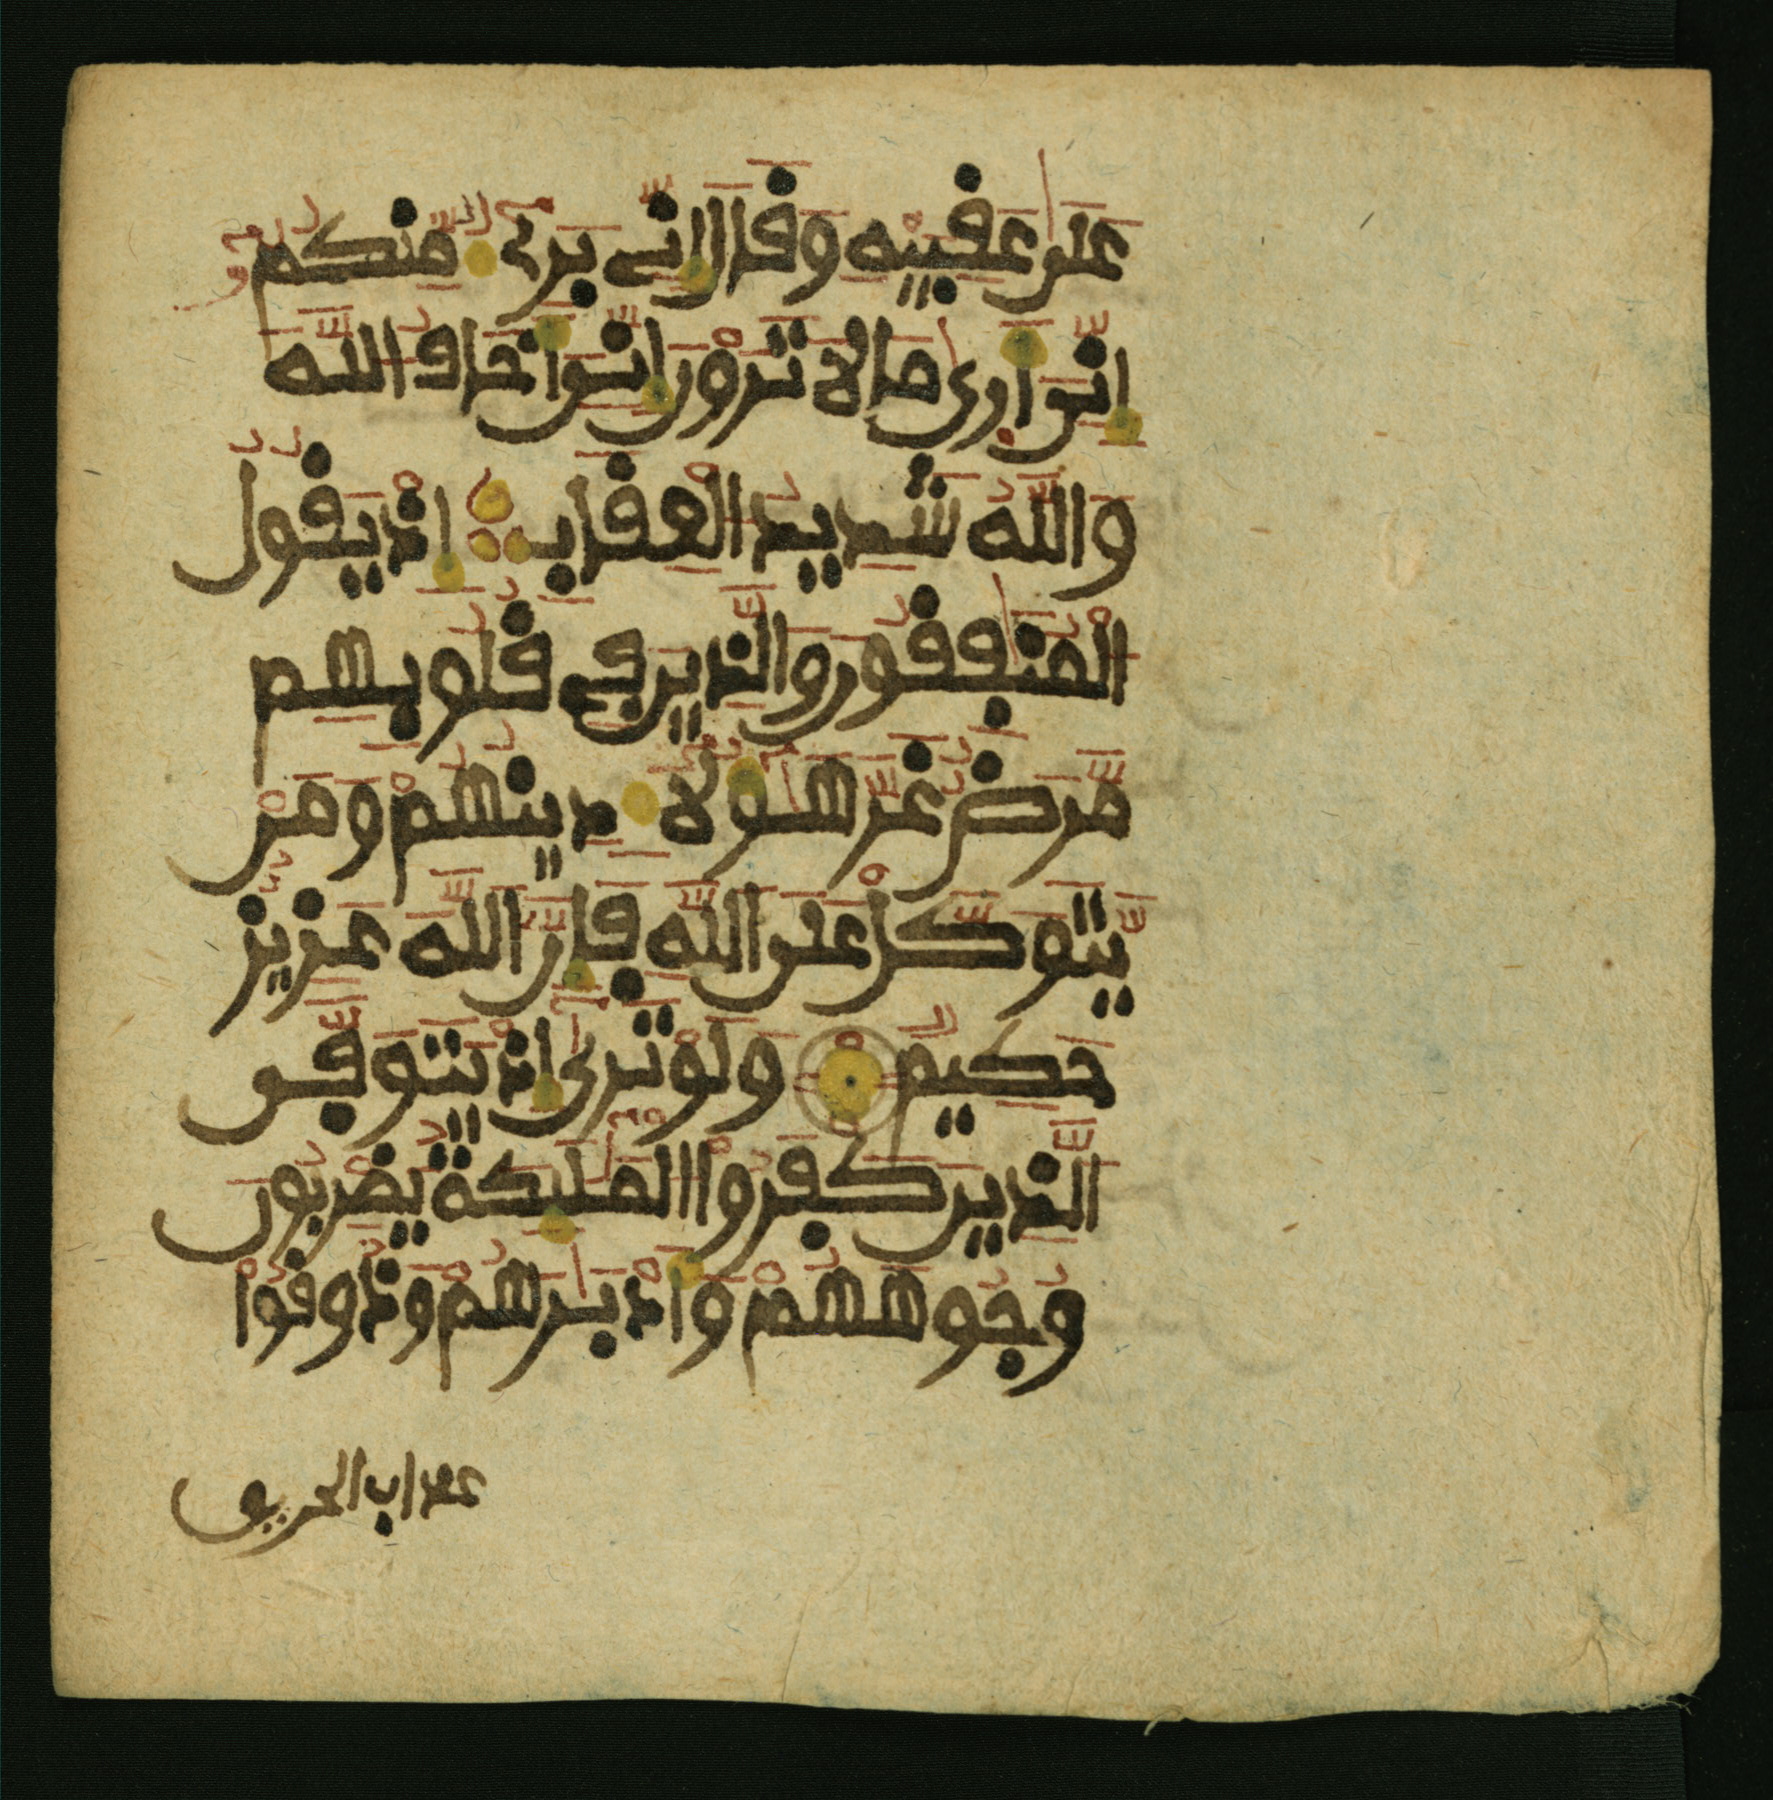 عَلَىٰ عَقِبَيْهِ وَقَالَ إِنِّي بَرِيٓءٌ مِّنكُمُۥٓ
إِنِّيَ أَرَىٰ مَا لَا تَرَوْنَ إِنِّيَ أَخَافُ اللَّهَ
وَاللَّهُ شَدِيدُ الْعِقَابِ إِذْ يَقُولُ
الْمُنَٰفِقُونَ وَالَّذِينَ فِي قُلُوبِهِم
مَّرَضٌ غَرَّ هَٰٓؤُلَآءِ دِينُهُمْ وَمَنْ
يَّتَوَكَّلْ عَلَى اللَّهِ فَإِنَّ اللَّهَ عَزِيزٌ
حَكِيمٌ وَلَوْ تَرَىٰٓ إِذْ يَتَوَفَّى
الَّذِينَ كَفَرُواْ الْمَلَٰٓئِكَةُ يَضْرِبُونَ
وُجُوهَهُمْ وَأَدْبَٰرَهُمْ وَذُوقُواْ
عذاب الحريق